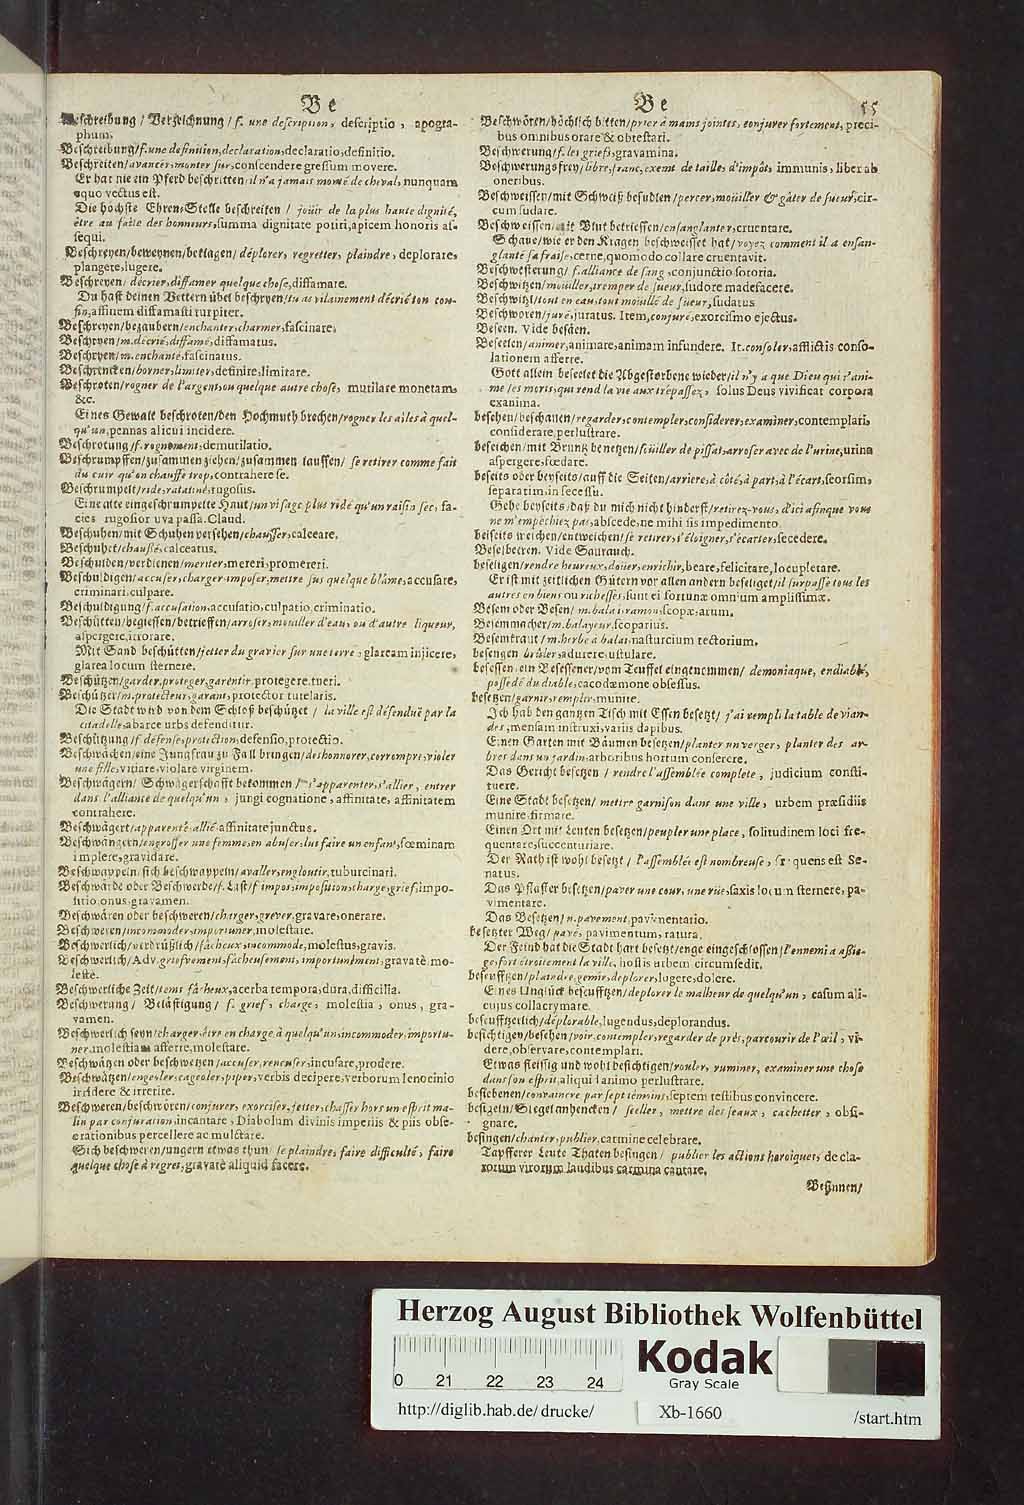 Be
Beschreibung / Verzeichnung / f. une description, descriptio, apogra-
phum,
Beschreibung/f. une definition, declaration, declaratio, definitio.
Beschreiten/avancer, monter sur, conscendere gressum movere.
Er hat nie ein Pferd beschritten/il n'a jamais monté de cheval, nunquam
equo vectus est.
Die höchste Ehren-Stelle beschreiten / joüir de la plus haute dignité,
être au faîte des honneurs, summa dignitate potiri, apicem honoris as-
sequi.
Beschreyen/beweynen/beklagen/ déplorer, regretter, plaindre, deplorare,
plangere, lugere.
Beschreyen/ décrier, diffamer quelque chose, diffamare.
Du hast deinen Vettern übel beschreyt/tu as vilainement décrié ton cou-
sin, affinem diffamasti turpiter.
Beschreyen/bezaubern/enchanter, charmer, fascinare.
Beschryen/m. decrié, diffamé, diffamatus.
Beschryen/m. enchanté, fascinatus.
Beschrencken/borner, limiter, definire, limitare.
Beschroten/rogner de l'argent, ou quelque autre chose, mutilare monetam,
&c.
Eines Gewalt beschroten/den Hochmuth brechen/rogner les ailes à quel-
qu'un, pennas alicui incidere.
Beschrotung/f. rognement, demutilatio.
Beschrumpffen/zusammen ziehen/zusammen lauffen/ se retirer comme fait
du cuir qu'on chauffe trop, contrahere se.
Beschrumpelt/ride, ratatiné, rugosus.
Eine alte eingeschrumpelte Haut/un visage plus ridé qu'un raisin sec, fa-
cies rugosior uva passa. Claud.
Beschuhen/mit Schuhen versehen/chausser, calceare.
Beschuhet/chaussé, calceatus.
Beschulden/verdienen/meriter, mereri, promereri.
Beschuldigen/accuser, charger, imposer, mettre sus quelque blâme, accusare,
criminari, culpare.
Beschuldigung/f. accusation, accusatio, culpatio, criminatio.
Beschütten/begiessen/betrieffen/arroser, mouiller d'eau, ou d'autre liqueur,
aspergere, irrorare.
Mit Sand beschütten/jetter du gravier sur une terre, glaream injicere,
glarea locum sternere.
Beschützen/garder, proteger, garentir, protegere, tueri.
Beschützer/m. protecteur, garant, protector tutelaris.
Die Stadt wird von dem Schloß beschützet / la ville est défenduë par la
citadelle, ab arce urbs defenditur.
Beschützung/f. defense, protection, defensio, protectio.
Beschwächen/eine Jungfrau zu Fall bringen/deshonnorer, corrompre, violer
une fille, vitiare, violare virginem.
Beschwägern/ Schwägerschafft bekommen / s'apparenter, s'allier, entrer
dans l'alliance de quelqu'un, jungi cognatione, affinitate, affinitatem
contrahere.
Beschwägert/apparenté, allié, affinitate junctus.
Beschwängern/engrosser une femme, en abuser, lui faire un enfant, fœminam
implere, gravidare.
Beschwappeln/sich beschwappeln/avaller, engloutir, tuburcinari.
Beschwärde oder Beschwerde/f. Last/f. impos, imposition, charge, grief, impo-
sitio, onus, gravamen.
Beschwären oder beschweren/charger, grever, gravare, onerare.
Beschweren/incommoder, importuner, molestare.
Beschwerlich/verdrüßlich/fâcheux, incommode, molestus, gravis.
Beschwerlich/Adv. griefvement, fâcheusement, importunément, gravatè, mo-
lestè.
Beschwerliche Zeit/tems fâcheux, acerba tempora, dura, difficilia.
Beschwerung/ Belästigung/ f. grief, charge, molestia, onus, gra-
vamen.
Beschwerlich seyn/charger, être en charge à quelqu'un, incommoder, importu-
ner, molestiam afferre, molestare.
Beschwätzen oder beschwetzen/accuser, rencuser, incusare, prodere.
Beschwätzen/engeoler, cageoler, piper, verbis decipere, verborum lenocinio
irridere & irretire.
Beschweren/beschwören/conjurer, exorciser, jetter, chasser hors un esprit ma-
lin par conjuration, incantare, Diabolum divinis imperiis & piis obse-
crationibus percellere ac mulctare.
Sich beschweren/ungern etwas thun/ se plaindre, faire difficulté, faire
quelque chose à regret, gravatè aliquid facere.
Be 55
Beschwören/höchlich bitten/prier à mains jointes, conjurer fortement, preci-
bus omnibus orare & obtestari.
Beschwerung/f. les griefs, gravamina.
Beschwerungsfrey/libre, franc, exemt de taille, d'impôt, immunis, liber ab
oneribus.
Beschweissen/mit Schweiß besudlen/percer, moüiller & gâter de sueur, cir-
cum sudare.
Beschweissen/mit Blut betriessen/ensanglanter, cruentare.
Schaue/wie er den Kragen beschweisset hat/voyez comment il a ensan-
glanté sa fraise, cerne, quomodo collare cruentavit.
Beschwesterung/f. alliance de sang, conjunctio sororia.
Beschwitzen/moüiller, tremper de sueur, sudore madefacere.
Beschwitzt/tout en eau, tout moüillé de sueur, sudatus.
Beschworen/juré, juratus. Item, conjuré, exorcismo ejectus.
Beseen. Vide besäen.
Beseelen/animer, animare, animam infundere. It. consoler, afflictis conso-
lationem afferre.
Gott allein beseelet die Abgestorbene wieder/il n'y a que Dieu qui r'ani-
me les morts, qui rend la vie aux trépassez, solus Deus vivificat corpora
exanima.
besehen/beschauen/regarder, contempler, considerer, examiner, contemplari,
considerare, perlustrare.
beseichen/mit Bruntz benetzen/soüiller de pissat, arroser avec de l'urine, urina
aspergere, fœdare.
beseits oder beyseits/auff die Seiten/arriere, à côté, à part, à l'écart, seorsim,
separatim, in secessu.
Gehe beyseits/daß du mich nicht hinderst/retirez-vous, d'ici afinque vous
ne m'empéchiez pas, abscede, ne mihi sis impedimento.
beiseits weichen/entweichen/se retirer, s'éloigner, s'écarter, secedere.
Beselbeeren. Vide Saurauch.
beseligen/rendre heureux, doüer, enrichir, beare, felicitare, locupletare.
Er ist mit zeitlichen Gütern vor allen andern beseliget/il surpasse tous les
autres en biens ou richesses, sunt ei fortunæ omnium amplissimæ.
Besem oder Besen/ m. balai, ramon, scopæ, arum.
Besemmacher/m. balayeur, scoparius.
Besemkraut/m. herbe à balai, nasturcium tectorium.
besengen brûler, adurere, ustulare.
besessen, ein Besessener/vom Teuffel eingenommen/ demoniaque, endiablé,
possedé du diable, cacodæmone obsessus.
besetzen/garnir, remplir, munire.
Ich hab den gantzen Tisch mit Essen besetzt/ j'ai rempli la table de vian-
des, mensam instruxi, variis dapibus.
Einen Garten mit Bäumen besetzen/planter un verger, planter des ar-
bres dans un jardin, arboribus hortum conserere.
Das Gericht besetzen / rendre l'assemblée complete, judicium consti-
tuere.
Eine Stadt besetzen/ mettre garnison dans une ville, urbem præsidiis
munire firmare.
Einen Ort mit Leuten besetzen/peupler une place, solitudinem loci fre-
quentare, succenturiare.
Der Rath ist wohl besetzt / l'assemblée est nombreuse, frequens est Se-
natus.
Das Pflaster besetzen/paver une cour, une rüe, saxis locum sternere, pa-
vimentare.
Das Besetzen/n. pavement, pavimentatio.
besetzter Weg/pavé, pavimentum, ratura.
Der Feind hat die Stadt hart besetzt/enge eingeschlossen/l'ennemi a assie-
gé, fort étroitement la ville, hostis urbem circumsedit.
beseufftzen/plaindre, gemir, deplorer, lugere, dolere.
Eines Unglück beseufftzen/deplorer le malheur de quelqu'un, casum ali-
cujus collacrymare.
beseufftzerlich/déplorable, lugendus, deplorandus.
besichtigen/besehen/voir, contempler, regarder de prés, parcourir de l'œil, vi-
dere, observare, contemplari.
Etwas fleissig und wohl besichtigen/rouler, ruminer, examiner une chose
dans son esprit, aliquid animo perlustrare.
besiebenen/convaincre par sept témoins, septem testibus convincere.
besigeln/Siegel anhencken/ seeller, mettre des seaux, cachetter, obsi-
gnare.
besingen/chanter, publier, carmine celebrare.
Tapfferer Leute Thaten besingen/ publier les actions heroiques, de cla-
rorum virorum laudibus carmina cantare.
Besinnen/
Herzog August Bibliothek Wolfenbüttel
0 21 22 23 24
Kodak
Gray Scale
http://diglib.hab.de/drucke/ Xb-1660 /start.htm